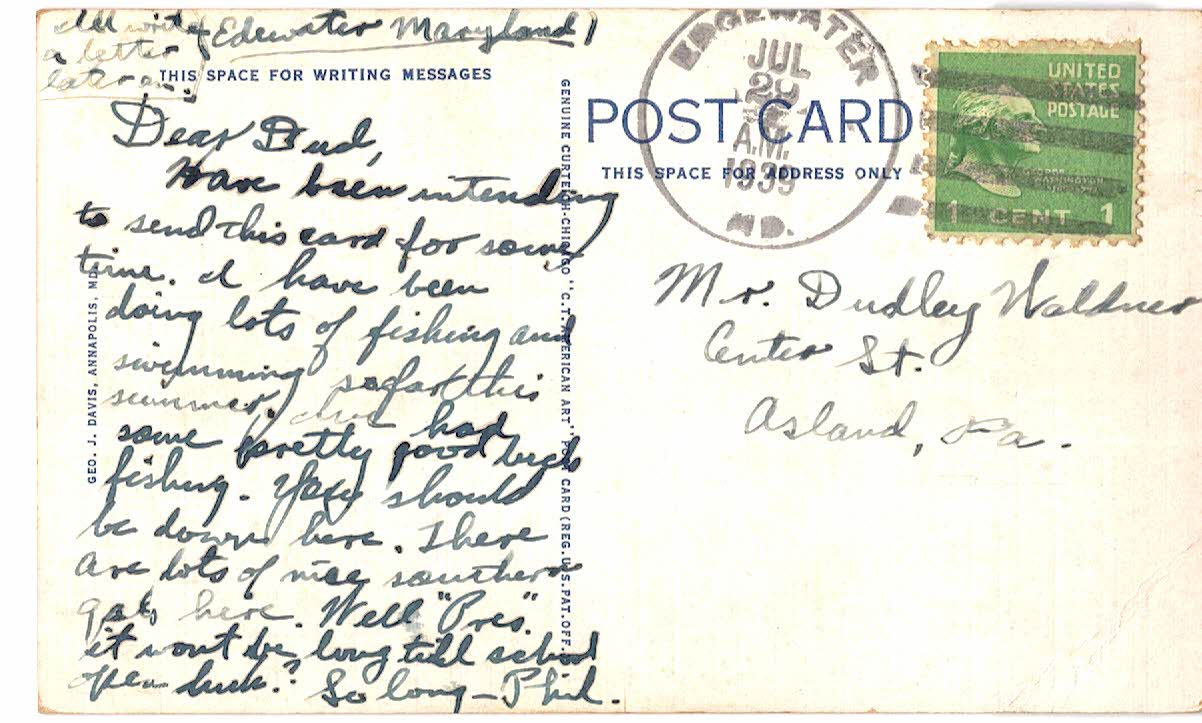 I'll write
a letter
later.
(Edewater Maryland)
THIS SPACE FOR WRITING MESSAGES
Dear Bud,
Have been intending
to send this card for some
time. I have been
doing lots of fishing and
swimming so far this
summer, had
some pretty good luck
fishing. You should
be down here. There
are lots of nice southern
gals here. Well "Pres".
it wont be long till school
open huh.? So long - Phil.
GEO. J. DAVIS, ANNAPOLIS, MD.
GENUINE CURTEICH-CHICAGO "C.T. AMERICAN ART" POST CARD (REG. U.S. PAT. OFF.
POST CARD
THIS SPACE FOR ADDRESS ONLY
EDGEWATER
JUL
29
A.M.
1939
MD.
UNITED
STATES
POSTAGE
GEORGE
WASHINGTON
1 CENT 1
Mr. Dudley Waldner
Center St.
Asland, Pa.